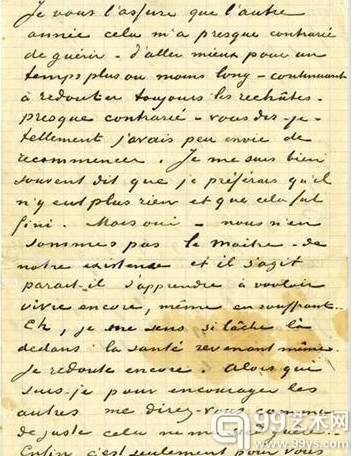 Je vous l'assure que l'autre
année cela m'a presque contrarié
de guérir – d'aller mieux pour un
temps plus ou moins long – continuant
à redouter toujours les rechûtes –
presque contrarié – vous dis-je –
tellement j'avais peu envie de
recommencer. Je me suis bien
souvent dit que je préférais qu'il
n'y eut plus rien et que cela fut
fini. Mais oui – nous n'en
sommes pas le maître – de
notre existence et il s'agit
parait-il d'apprendre à vouloir
vivre encore, même en souffrant.
Eh, je me sens si lâche là
dedans : la santé revenant même
je redoute encore. Alors qui
suis-je pour encourager les
autres me direz-vous comme
de juste cela ne me
Enfin c'est seulement pour vous
99艺术网
99ys.com